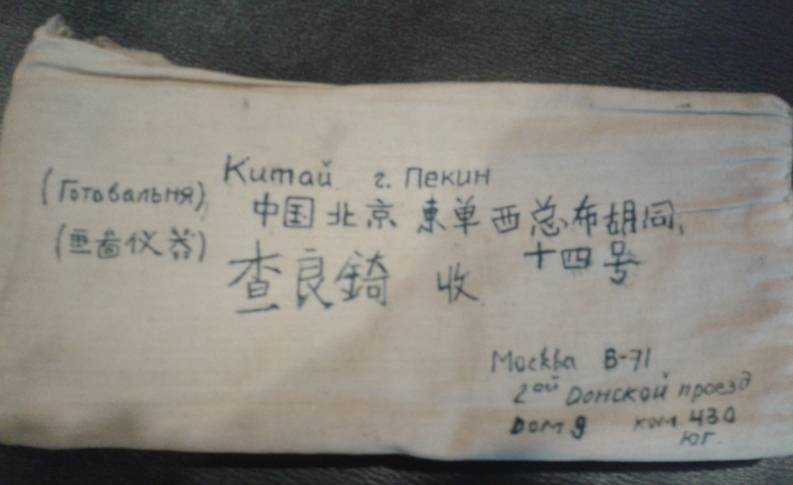 (Готовальня)
(画畾仪器)
Китай г. Пекин
中国北京 東单西总布胡同,
十四号
查良錡 收
Москва В-71
2ой Донской проезд
Дом 9 ком. 430
юг.